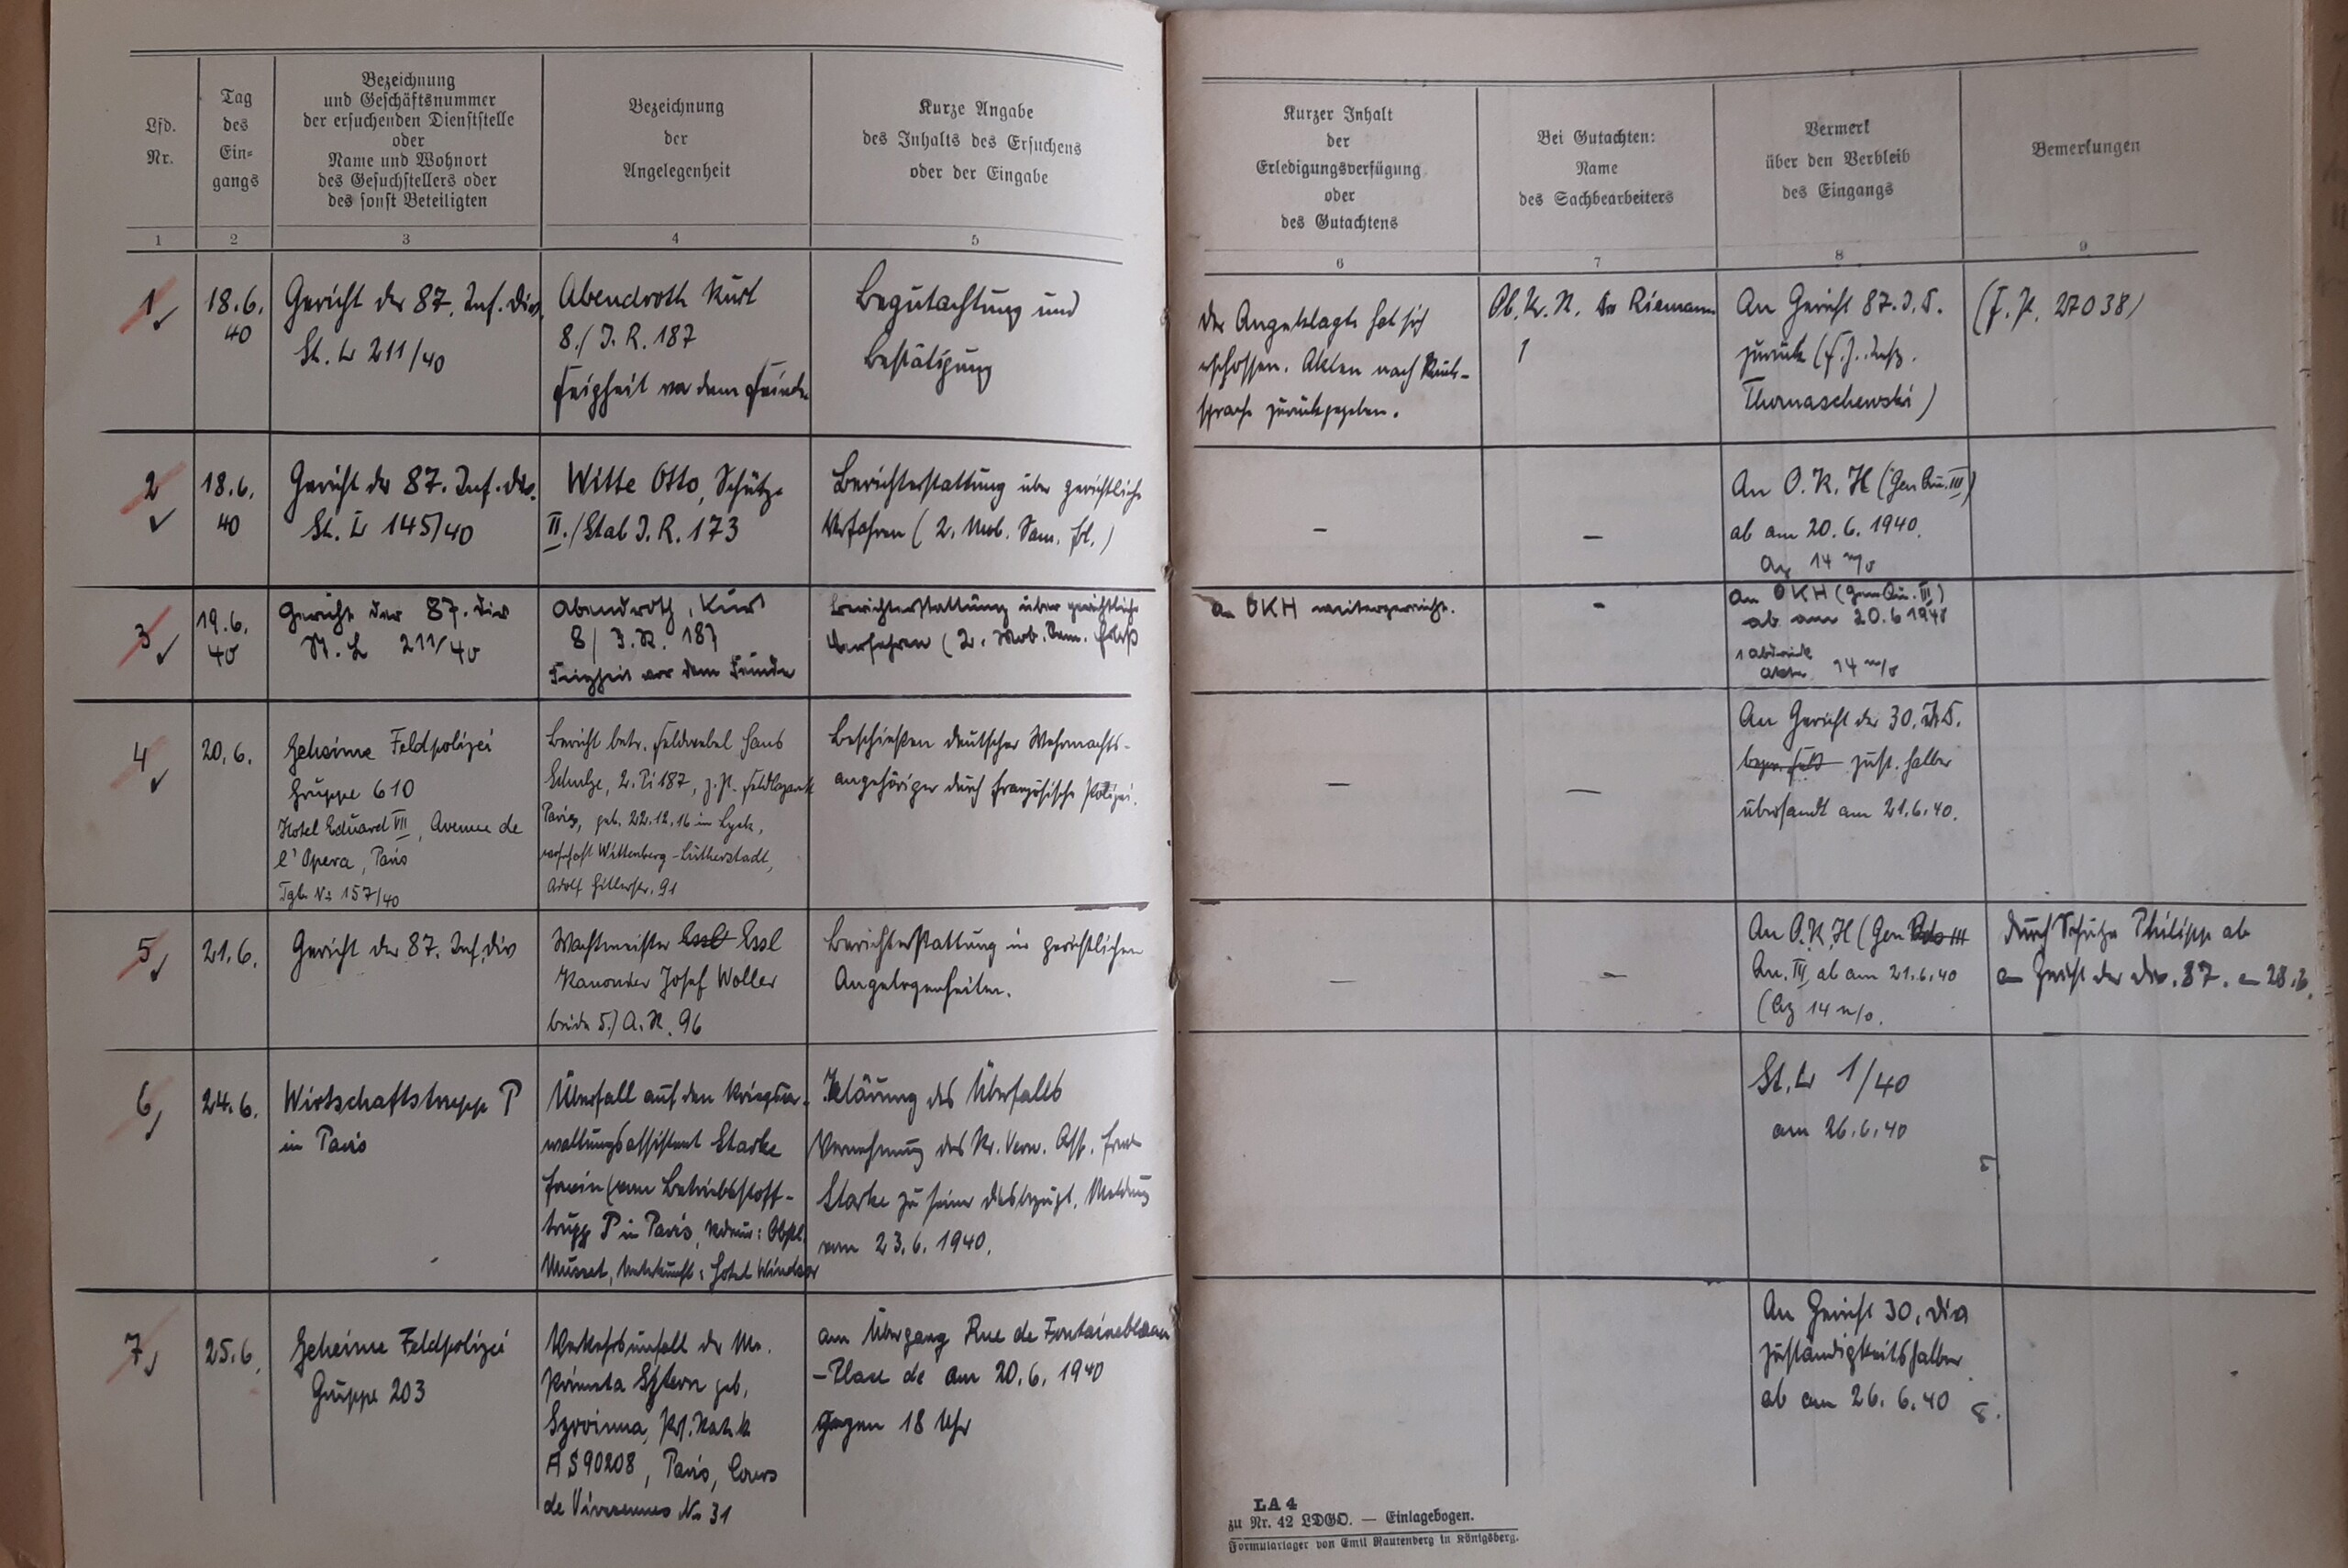 Lfd.
Nr.
1
Tag
des
Ein-
gangs
2
Bezeichnung
und Geschäftsnummer
der ersuchenden Dienststelle
oder
Name und Wohnort
des Gesuchstellers oder
des sonst Beteiligten
3
Bezeichnung
der
Angelegenheit
4
Kurze Angabe
des Inhalts des Ersuchens
oder der Eingabe
5
Kurzer Inhalt
der
Erledigungsverfügung
oder
des Gutachtens
6
Bei Gutachten:
Name
des Sachbearbeiters
7
Vermerk
über den Verbleib
des Eingangs
8
Bemerkungen
9
1
18.6.
40
Gericht der 87. Inf. Div.
St. L 211/40
Abendroth Kurt
8./ I. R. 187
Feigheit vor dem Feinde
Begutachtung und
Bestätigung
Der Angeklagte hat sich
erschossen. Akten nach Rück-
sprache zurückgegeben.
Ob. Kr. R. Dr Riemann
1
An Gericht 87. I. D.
zurück (F. J. Insp.
Thomaschewski)
(F. P. 27038)
2
18.6.
40
Gericht der 87. Inf. Div.
St. L 145/40
Witte Otto, Schütze
II./Stab I. R. 173
Berichterstattung über gerichtliche
Verfahren (2. Mob. Sam. Erl.)
–
–
An O. K. H (Gen Qu. III)
ab am 20.6.1940.
Az 14 n/o
3
19.6.
40
Gericht der 87. Div
St. L 211/40
Abendroth, Kurt
8/ I. R. 187
Feigheit vor dem Feinde
Berichterstattung über gerichtliche
Verfahren (2. Mob. Sam. Erlaß
an OKH weitergereicht.
-
An OKH (Gen Qu. III)
ab am 20.6 1940
1 Abdruck
Akten 14 n/o
4
20.6.
Geheime Feldpolizei
Gruppe 610
Hotel Eduard VII, Avenue de
l'Opera, Paris
Tgb. Nr 157/40
Bericht betr. Feldwebel Hans
Schulze, 2. Pi 187, z. Zt. Feldlazarett
Paris, geb. 22.12.16 in Lyck,
wohnhaft Wittenberg-Lutherstadt,
Adolf Hitlerstr. 91
Beschießen deutscher Wehrmachts-
angehöriger durch französische Polizei.
–
–
An Gericht der 30. I.D.
zust. halber
übersandt am 21.6.40.
5
21.6.
Gericht der 87. Inf. Div
Wachtmeister Essl Essl
Kanonier Josef Woller
beide 5./ A. R. 96
Berichterstattung in gerichtlichen
Angelegenheiten.
–
–
An O. K. H (Gen
Qu. III, ab am 21.6.40
(Az 14 n/o.
durch Schütze Philipp ab
an Gericht der Div. 87. am 28.6.
6
24.6.
Wirtschaftstrupp P
in Paris
Überfall auf den Kriegsver-
waltungsassistent Starke
Erwin (vom Betriebsstoff-
trupp P in Paris, Kdeur: Obstl.
Musset, Unterkunft: Hotel Windsor
Klärung des Überfalls
Vernehmung des Kr. Verw. Ass. Erwin
Starke zu seiner diesbezügl. Meldung
vom 23.6.1940.
St. L 1/40
am 26.6.40
7
25.6.
Geheime Feldpolizei
Gruppe 203
Verkehrsunfall der Me.
Sztern geb.
A S 90208, Paris, Cours
de Vincennes No 31
am Übergang Rue de Fontainebleau
-Place de am 20.6.1940
gegen 18 Uhr
An Gericht 30. Div
zuständigkeitshalber
ab am 26.6.40
LA 4
zu Nr. 42 LDGO. — Einlagebogen.
Formularlager von Emil Rautenberg in Königsberg.